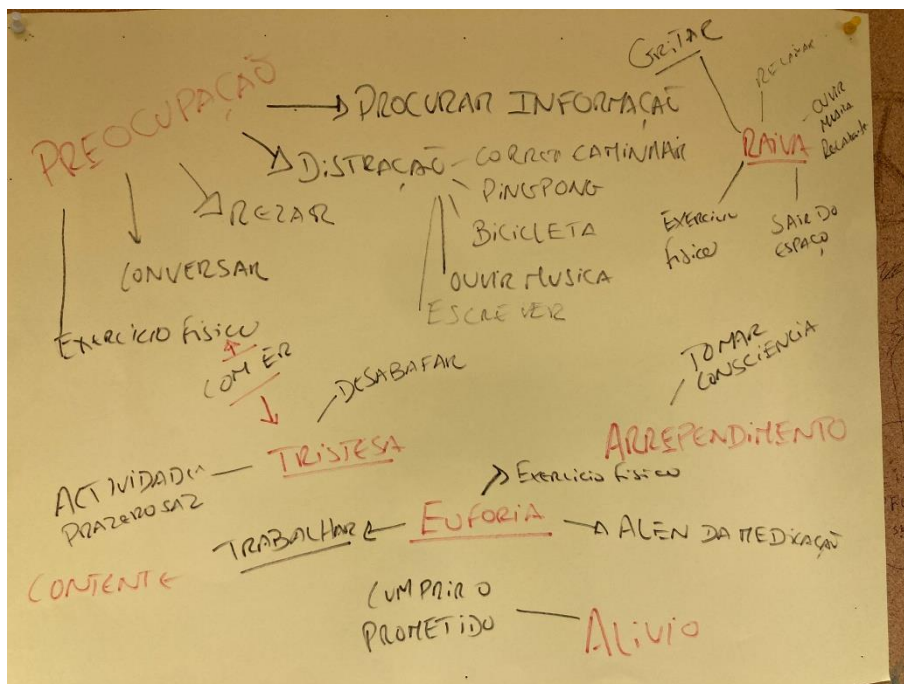 PREOCUPAÇÃO
PROCURAR INFORMAÇÃO
DISTRAÇÃO
CORRER CAMINHAR
PINGPONG
BICICLETA
OUVIR MUSICA
ESCREVER
REZAR
CONVERSAR
EXERCÍCIO FÍSICO
COMER
GRITAR
RECLAMAR
RAIVA
OUVIR
MUSICA
EXERCICIO
FISICO
SAIR DO
ESPAÇO
DESABAFAR
TRISTESA
ACTIVIDADES
PRAZEROSAZ
TOMAR
CONSCIÊNCIA
ARREPENDIMENTO
EXERCICIO FISICO
EUFORIA
TRABALHAR
ALEN DA MEDICAÇÃO
CONTENTE
CUMPRIR O
PROMETIDO
ALIVIO